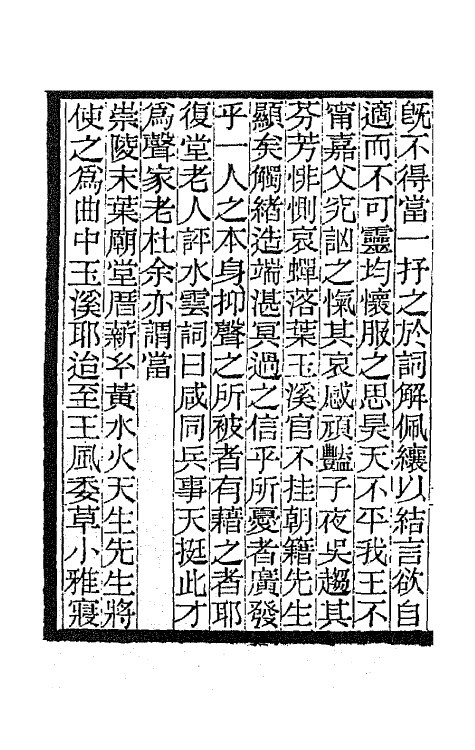 旣不得當一抒之於詞解佩纕以結言欲自
適而不可靈均懷服之思昊天不平我王不
甯嘉父究訩之愾其哀感頑豔子夜吳趨其
芬芳悱惻哀蟬落葉玉溪官不挂朝籍先生
顯矣觸緒造端湛冥過之信乎所憂者廣發
乎一人之本身抑聲之所被者有藉之者耶
復堂老人評水雲詞曰咸同兵事天挺此才
爲聲家老杜余亦謂當
崇陵末葉廟堂厝薪玄黃水火天生先生將
使之爲曲中玉溪耶迨至王風委草小雅寢